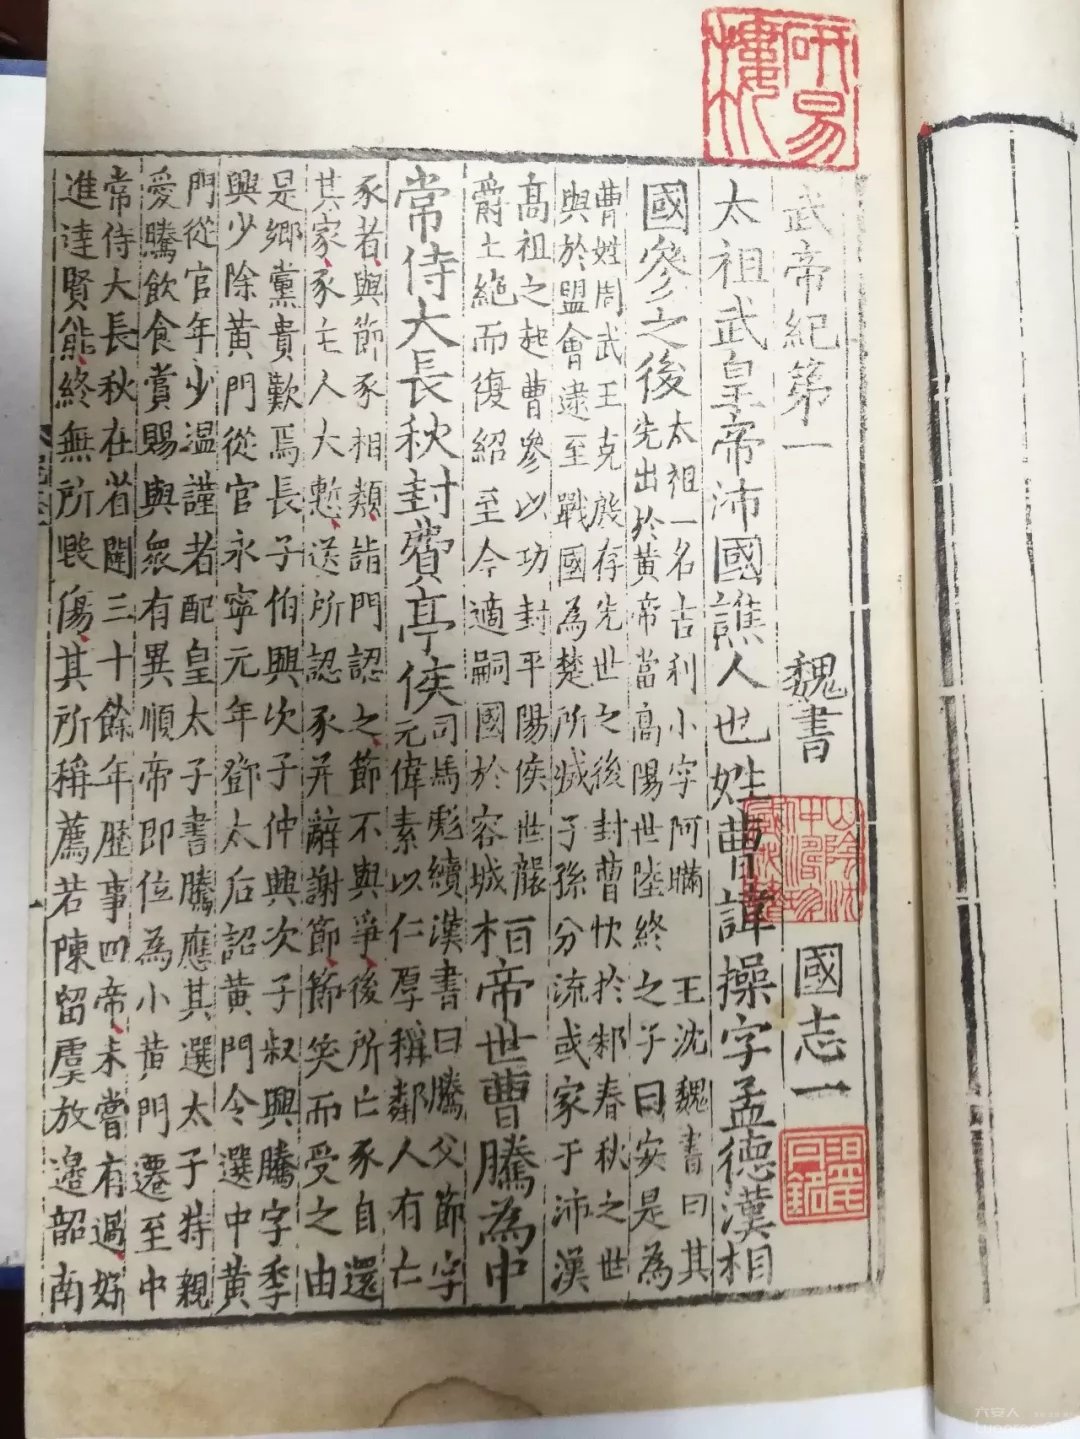 研易樓
武帝紀第一 魏書 國志一
太祖武皇帝沛國譙人也姓曹諱操字孟德漢相
國參之後 太祖一名吉利小字阿瞞 王沈魏書曰其
先出於黃帝當高陽世陸終之子曰安是為
曹姓周武王克殷存先世之後封曹俠於邾春秋之世
與於盟會逮至戰國為楚所滅子孫分流或家于沛漢
高祖之起曹參以功封平陽侯世襲
爵土絕而復紹至今適嗣國於容城 桓帝世曹騰為中
常侍大長秋封費亭侯 司馬彪續漢書曰騰父節字
元偉素以仁厚稱鄰人有亡
豕者與節豕相類詣門認之節不與爭後所亡豕自還
其家豕亡人大慙送所認豕并辭謝節節笑而受之由
是鄉黨貴歎焉長子伯興次子仲興次子叔興騰字季
興少除黃門從官永寧元年鄧太后詔黃門令選中黃
門從官年少温謹者配皇太子書騰應其選太子特親
愛騰飲食賞賜與眾有異順帝即位為小黃門遷至中
常侍大長秋在省闥三十餘年歷事四帝未嘗有過好
進達賢能終無所毀傷其所稱薦若陳留虞放邊韶南
六安人